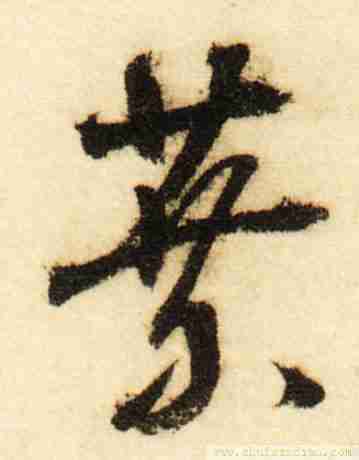 葉
www.shufazidian.com